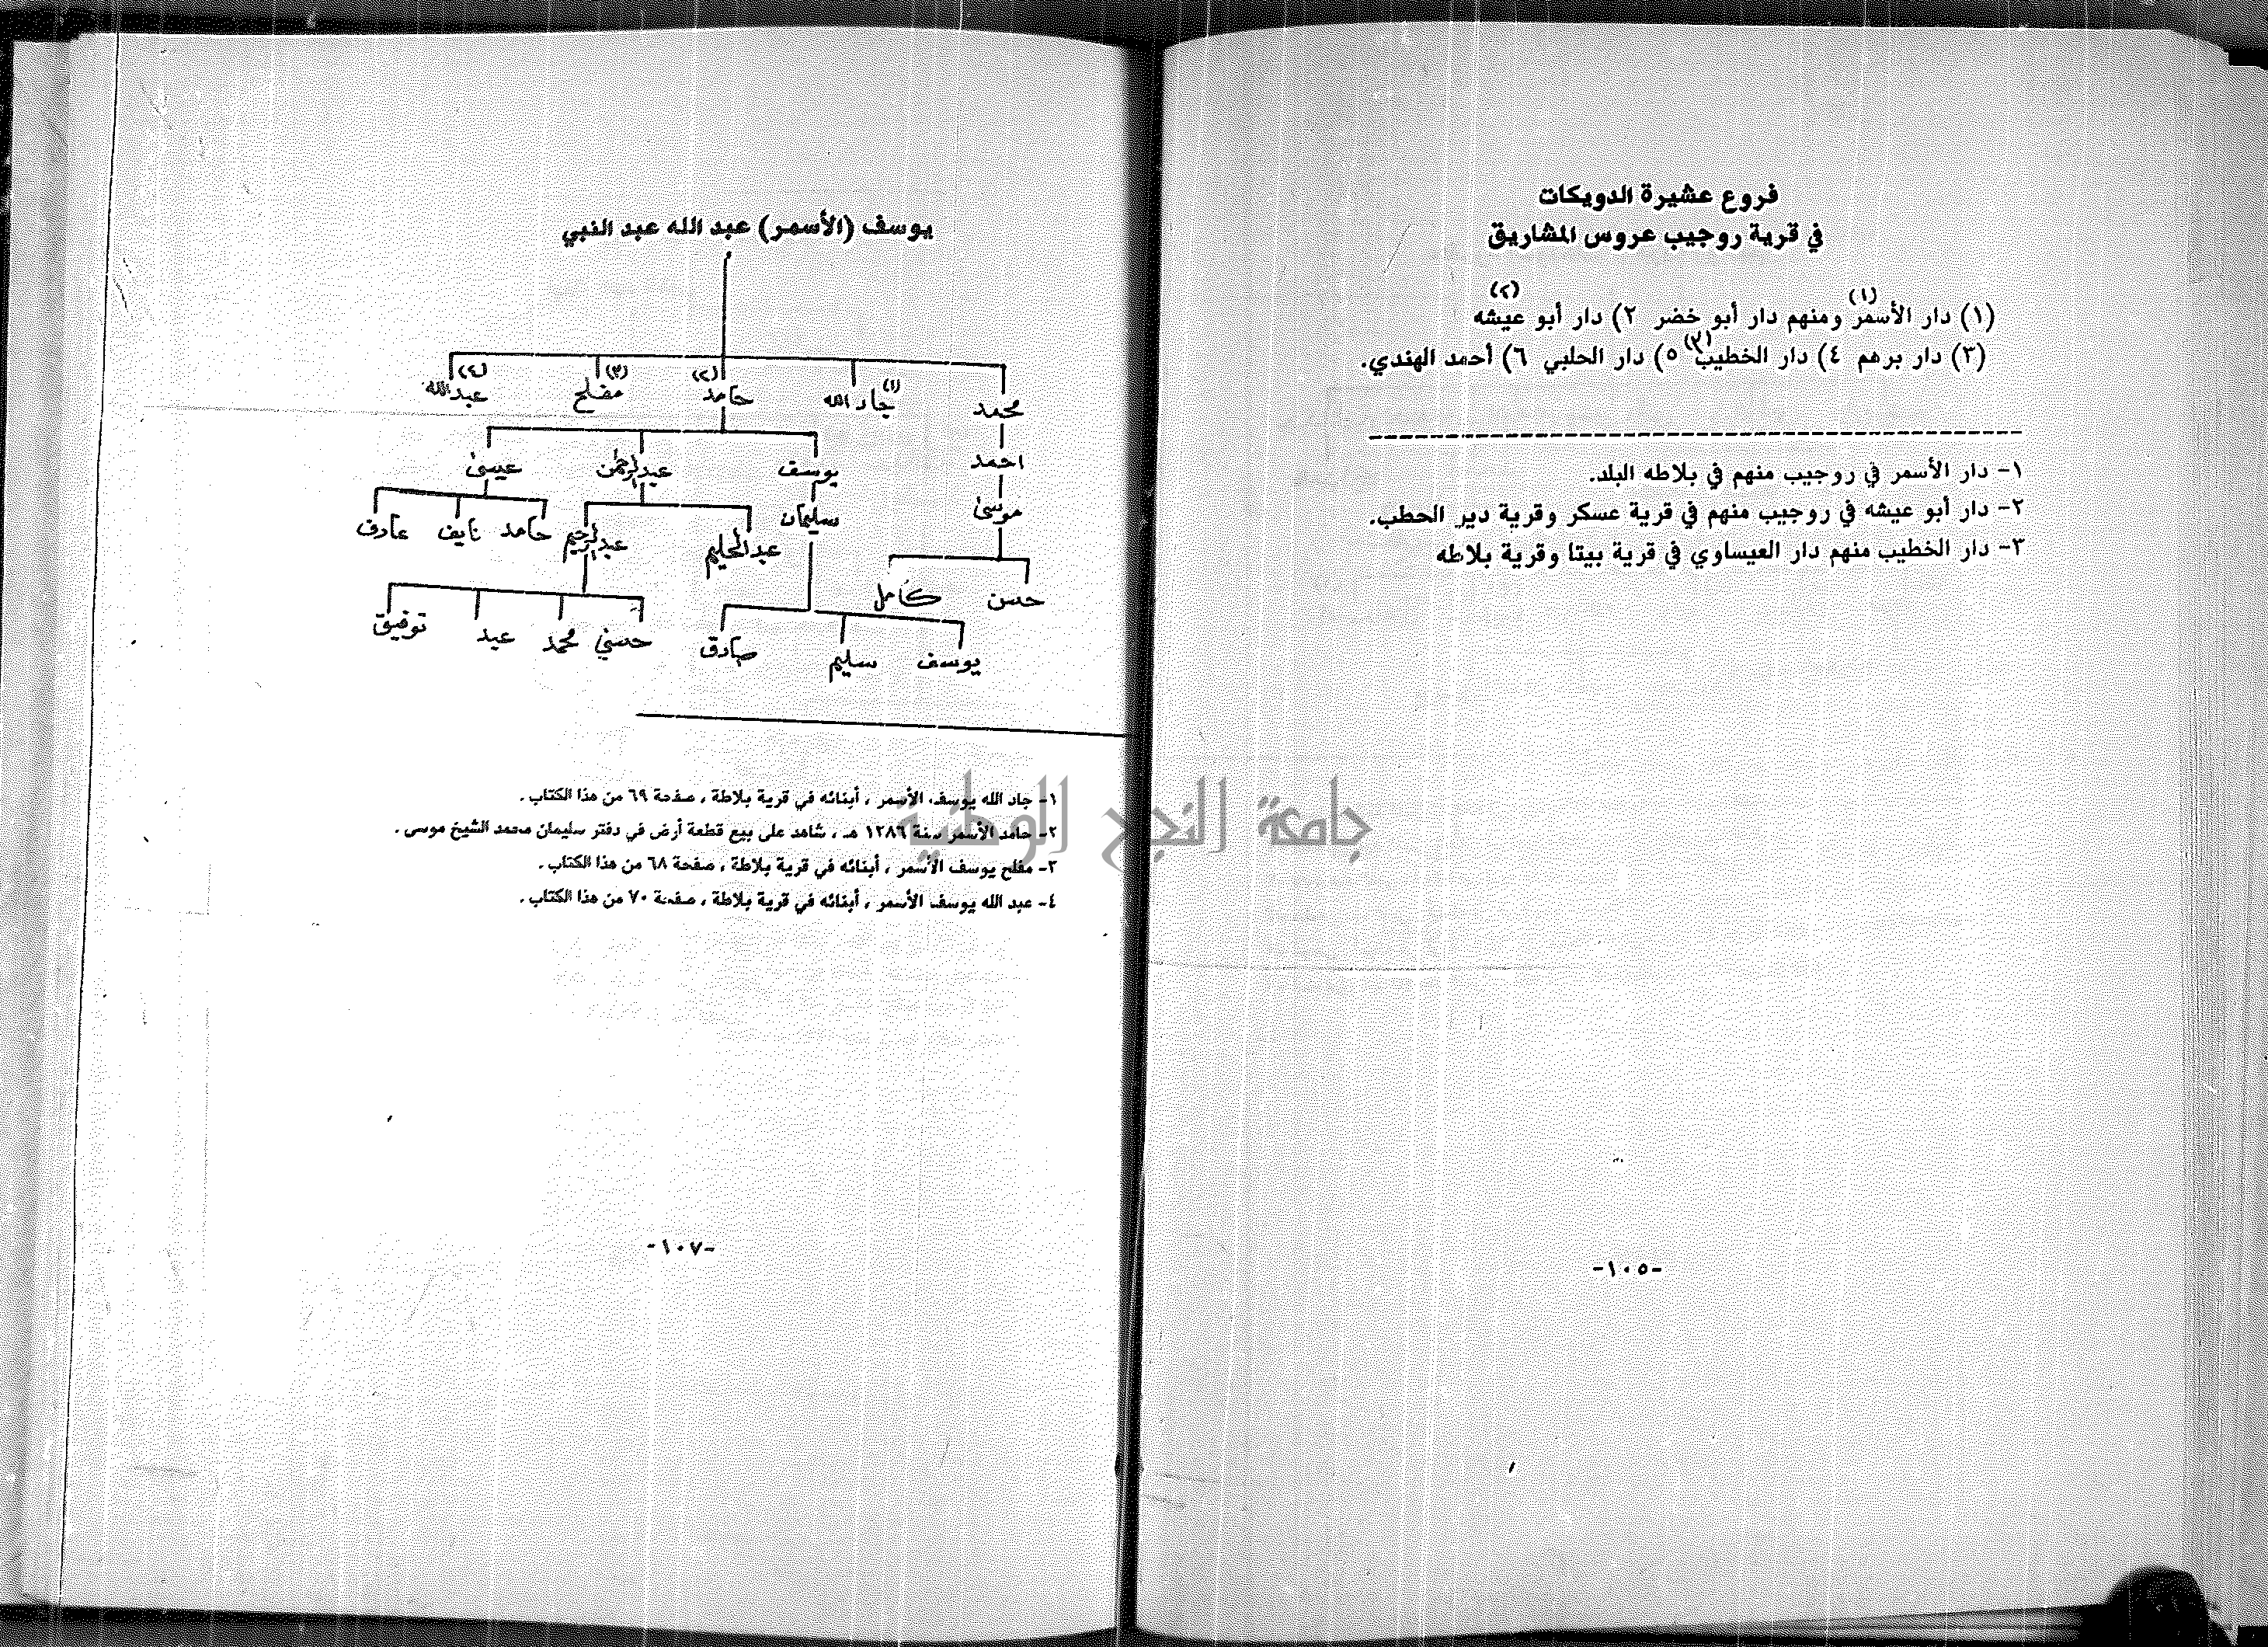 فروع عشيرة الدويكات
في قرية روجيب عروس المشاريق
(١) (٢)
(١) دار الأسمر ومنهم دار أبو خضر ٢) دار أبو عيشه
(٣)
(٣) دار برهم ٤) دار الخطيب ٥) دار الحلبي ٦) أحمد الهندي.
١- دار الأسمر في روجيب منهم في بلاطه البلد.
٢- دار أبو عيشه في روجيب منهم في قرية عسكر وقرية دير الحطب.
٣- دار الخطيب منهم دار العيساوي في قرية بيتا وقرية بلاطه
-١٠٥-
يوسف (الأسمر) عبد الله عبد النبي
محمد جاد الله (١) حامد (٢) مفلح (٣) عبدالله (٤)
احمد يوسف عبدالرحمن عيسى
موسى سليمان عبدالحليم عبدالرحيم حامد نايف عارف
حسن كامل يوسف سليم صادق حسني محمد عيد توفيق
١- جاد الله يوسف الأسمر ، أبنائه في قرية بلاطة ، صفحة ٦٩ من هذا الكتاب .
٢- حامد الأسمر سنة ١٢٨٦ هـ ، شاهد على بيع قطعة أرض في دفتر سليمان محمد الشيخ موسى .
٣- مفلح يوسف الأسمر ، أبنائه في قرية بلاطة ، صفحة ٦٨ من هذا الكتاب .
٤- عبد الله يوسف الأسمر ، أبنائه في قرية بلاطة ، صفحة ٧٠ من هذا الكتاب .
-١٠٧-
جامعة النجاح الوطنية